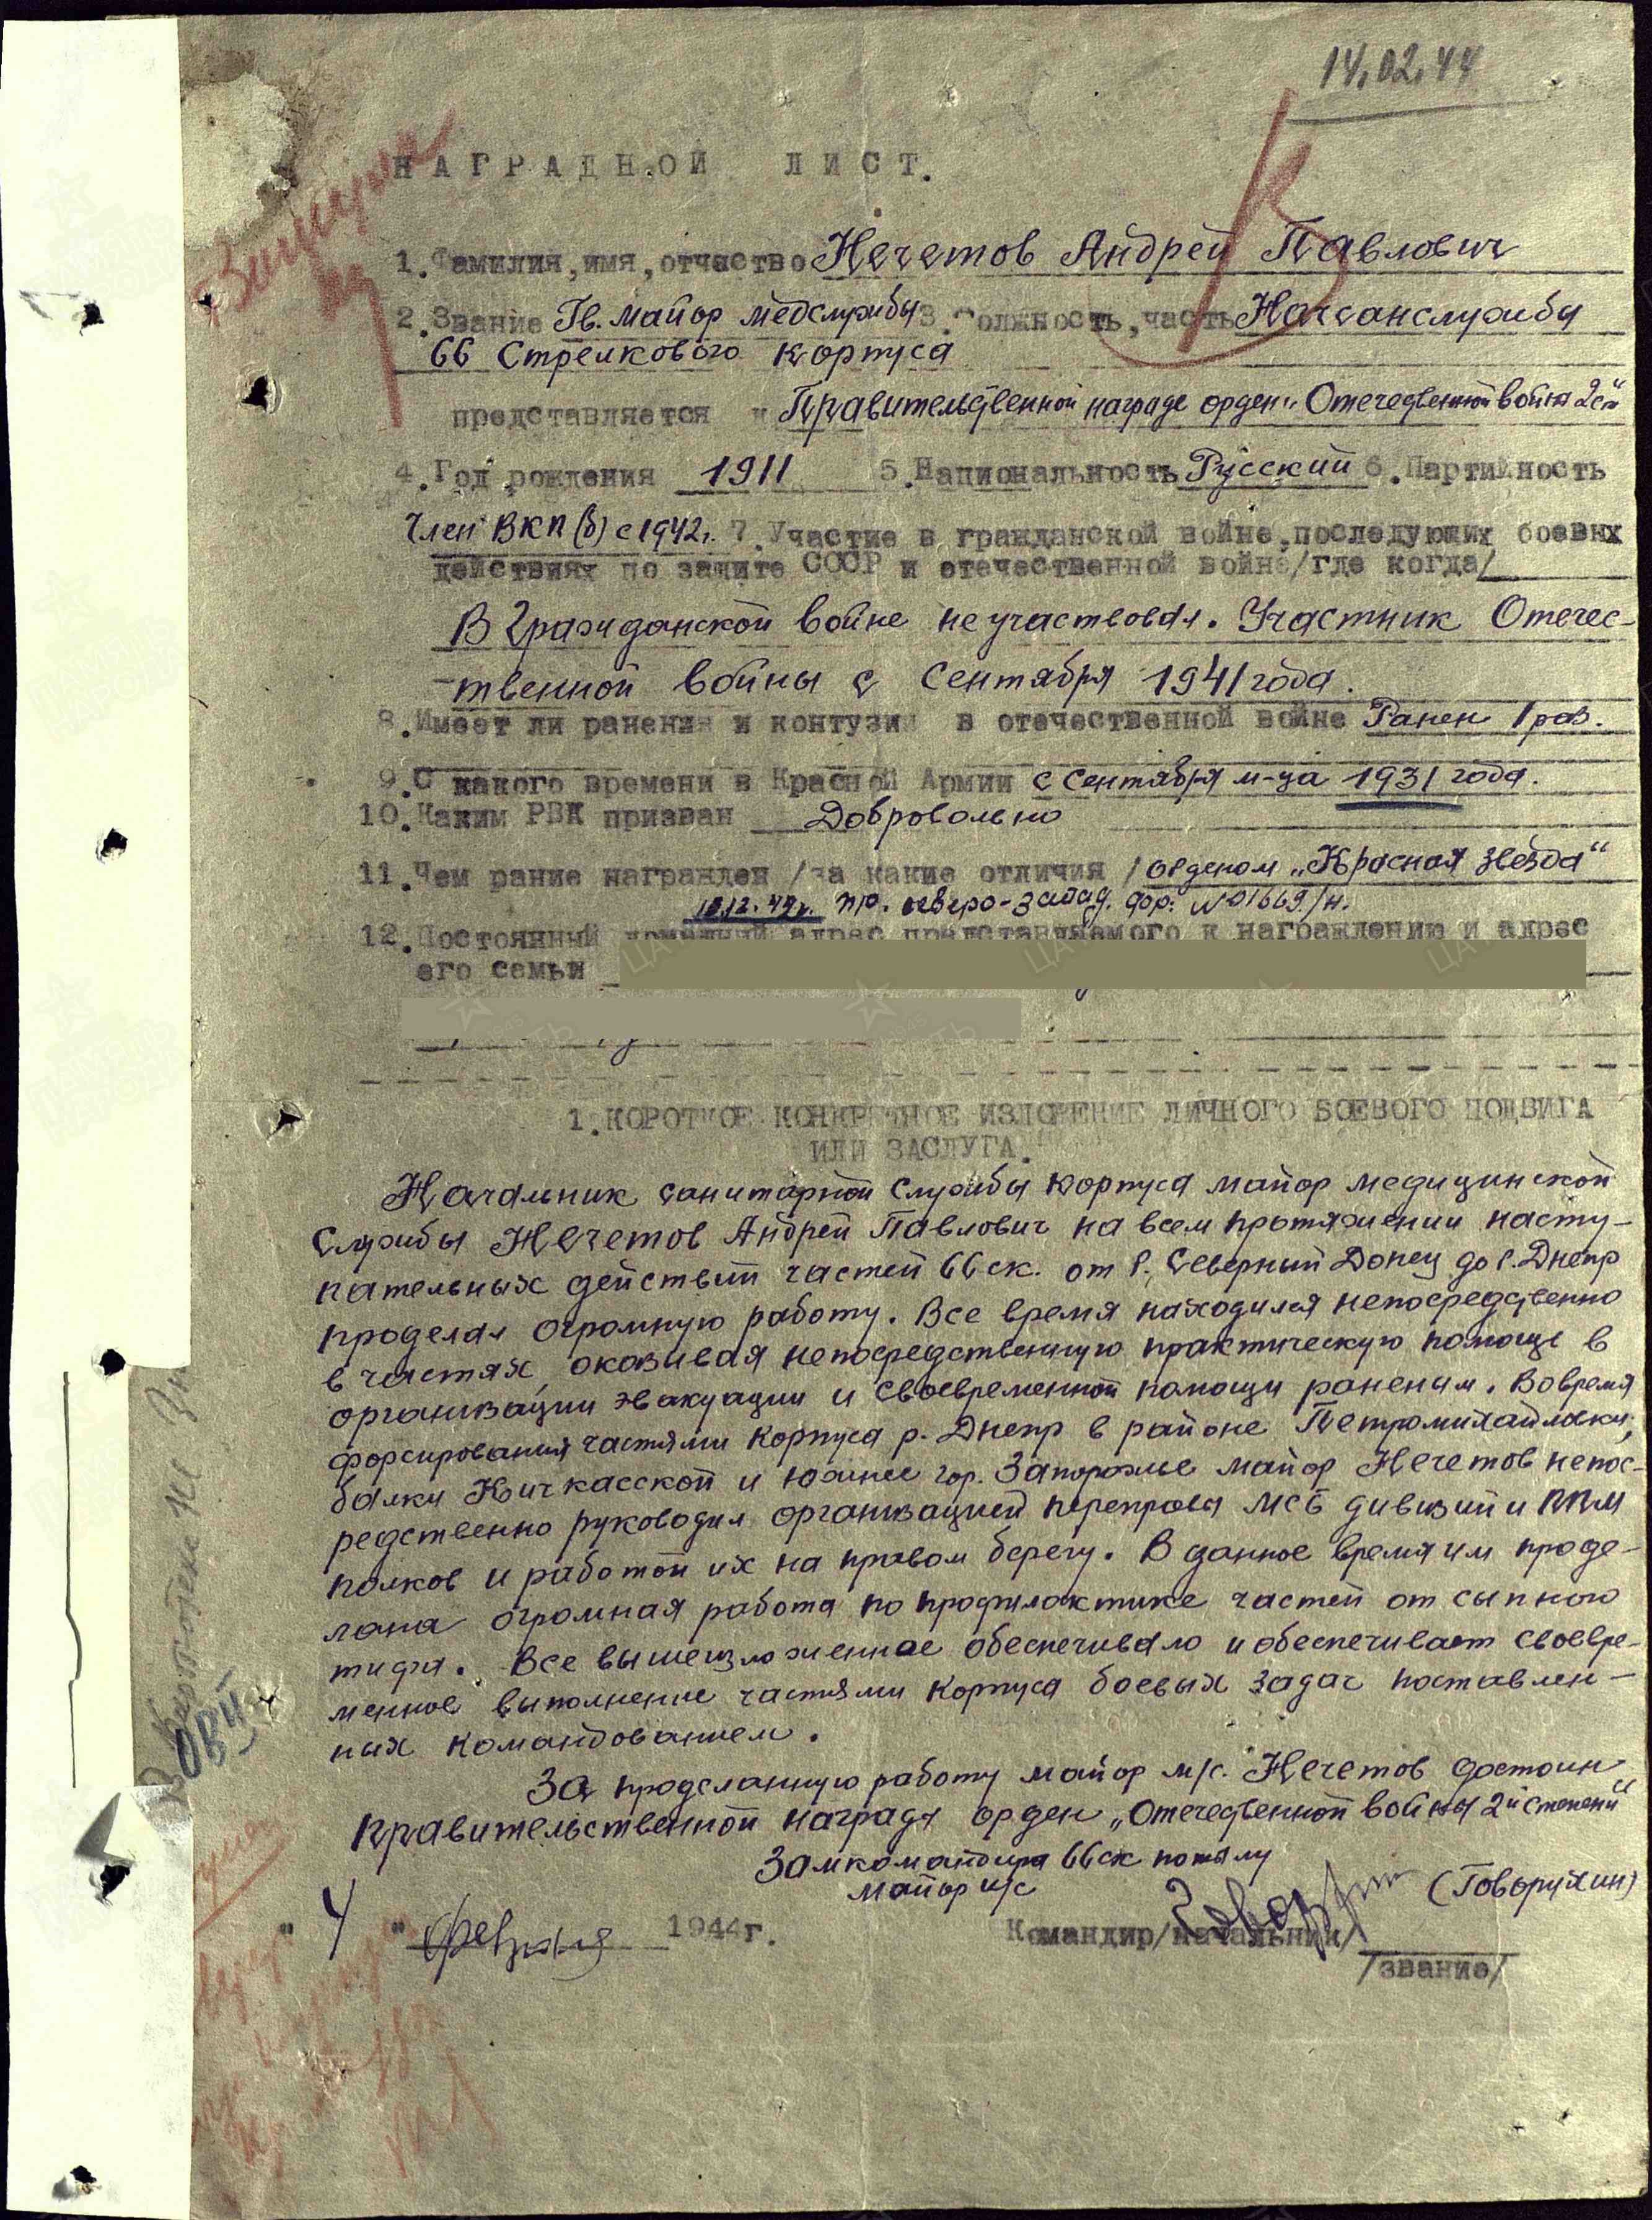 14.02.44
НАГРАДНОЙ ЛИСТ.
1. Фамилия, имя, отчество Нечетов Андрей Павлович
2. Звание Гв. майор медслужбы 3. Должность, часть Начсанслужбы
66 Стрелкового корпуса
представляется к Правительственной награде орден „Отечественной война 2 ст"
4. Год рождения 1911 5. Национальность Русский 6. Партийность
Член ВКП(б) с 1942 г. 7. Участие в гражданской войне, последующих боевых
действиях по защите СССР и отечественной войне /где когда/
В Гражданской войне не участвовал. Участник Отечес-
-твенной войны с Сентября 1941 года.
8. Имеет ли ранения и контузии в отечественной войне Ранен 1 раз.
9. С какого времени в Красной Армии с Сентября м-ца 1931 года.
10. Каким РВК призван Добровольно
11. Чем ранее награжден /за какие отличия / орденом „Красная звезда"
пр. северо-запад. фр. №01669/н.
12. Постоянный домашний адрес представляемого к награждению и адрес
его семьи
1. КОРОТКОЕ КОНКРЕТНОЕ ИЗЛОЖЕНИЕ ЛИЧНОГО БОЕВОГО ПОДВИГА
ИЛИ ЗАСЛУГА.
Начальник санитарной службы корпуса майор медицинской
службы Нечетов Андрей Павлович на всем протяжении насту-
пательных действий частей 66 ск. от р. Северный Донец до р. Днепр
проделал огромную работу. Все время находился непосредственно
в частях, оказывая непосредственную практическую помощь в
организации эвакуации и своевременной помощи раненым. Во время
форсирования частями корпуса р. Днепр в районе Петромихайловки,
балки Кичкасской и южнее гор. Запорожье майор Нечетов непос-
редственно руководил организацией переправы МСБ дивизий и ППМ
полков и работой их на правом берегу. В данное время им проде-
лана огромная работа по профилактике частей от сыпного
тифа. Все вышеизложенное обеспечивало и обеспечивает своевре-
менное выполнение частями корпуса боевых задач поставлен-
ных командованием.
За проделанную работу майор м/с. Нечетов достоин
правительственной награды орден „Отечественной войны 2й степени"
Замкомандира 66 ск по тылу
майор и/с
(Говорухин)
" 4 " февраля 1944 г.
Командир/начальник/
/звание/